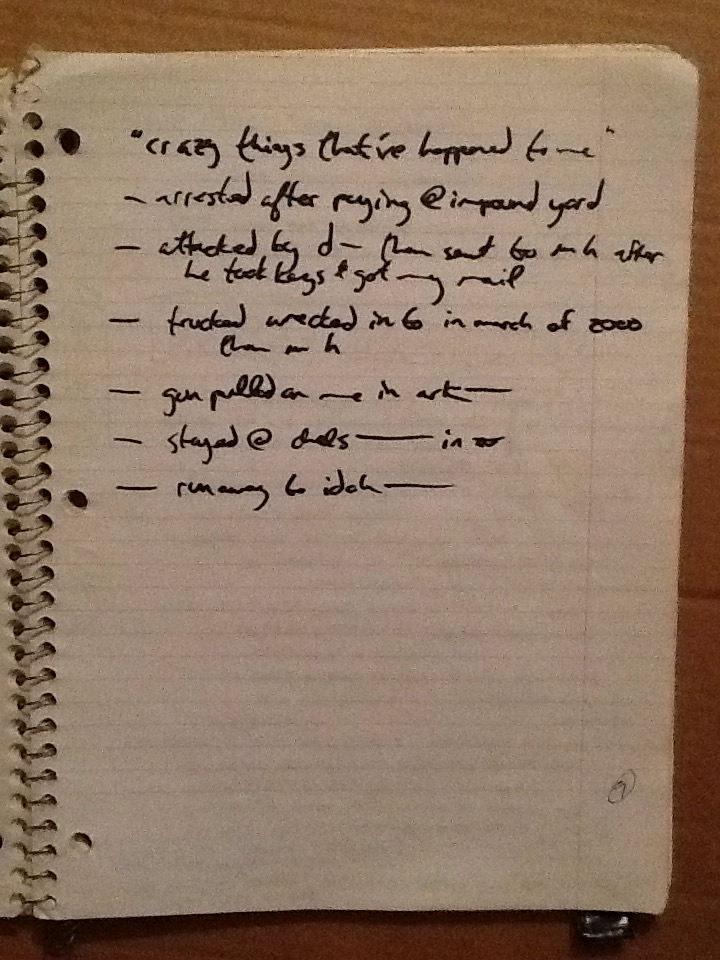 "crazy things that've happened to me"
— arrested after paying @ impound yard
— attacked by d— then sent to m h after
he took keys & got my mail
— trucked wrecked in to in march of 2000
then m h
— gun pulled on me in ark—
— stayed @ in
— runaway to idah—